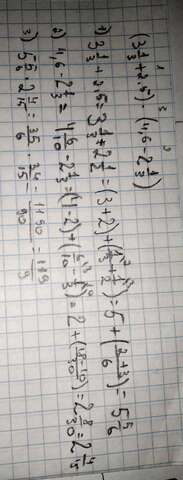 1 3 2
(3 1/3 + 2,5) · (4,6 - 2 1/3)
1) 3 1/3 + 2,5 = 3 1/3 + 2 1/2 = (3 + 2) + (1/3 + 1/2) = 5 + (2+3/6) = 5 5/6
2) 4,6 - 2 1/3 = 4 6/10 - 2 1/3 = (4 - 2) + (6/10 - 1/3) = 2 + (18-10/30) = 2 8/30 = 2 4/15
3) 5 5/6 · 2 4/15 = 35/6 · 34/15 = 1190/90 = 119/9